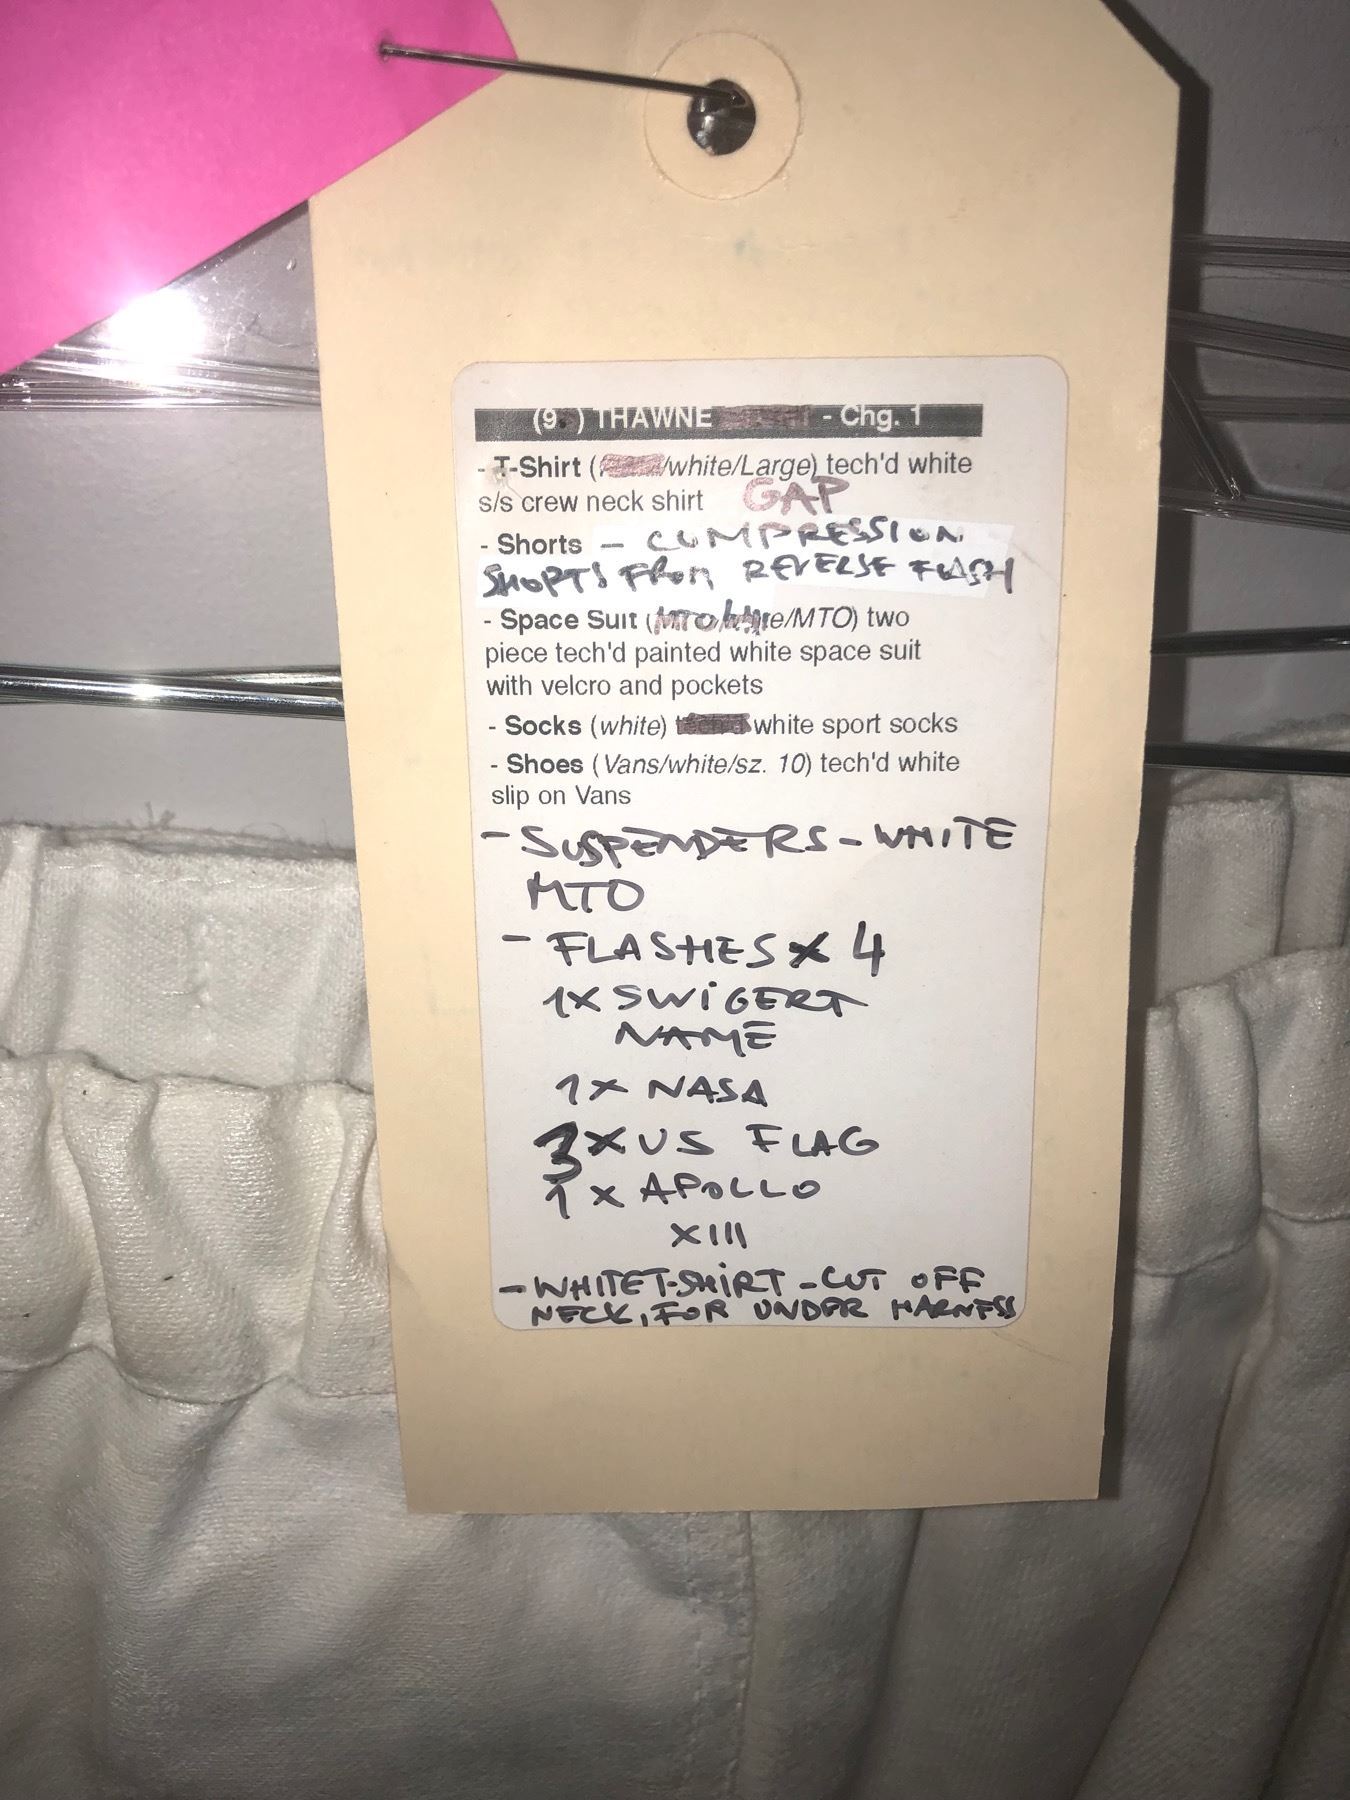 (9. ) THAWNE - Chg. 1
- T-Shirt ( /white/Large) tech'd white
s/s crew neck shirt GAP
- Shorts - COMPRESSION
SHORTS FROM REVERSE FLASH
- Space Suit (MTO/white/MTO) two
piece tech'd painted white space suit
with velcro and pockets
- Socks (white) white sport socks
- Shoes (Vans/white/sz. 10) tech'd white
slip on Vans
- SUSPENDERS - WHITE
MTO
- FLASHES X 4
1X SWIGERT
NAME
1X NASA
3X US FLAG
1X APOLLO
XIII
- WHITE T-SHIRT - CUT OFF
NECK, FOR UNDER HARNESS